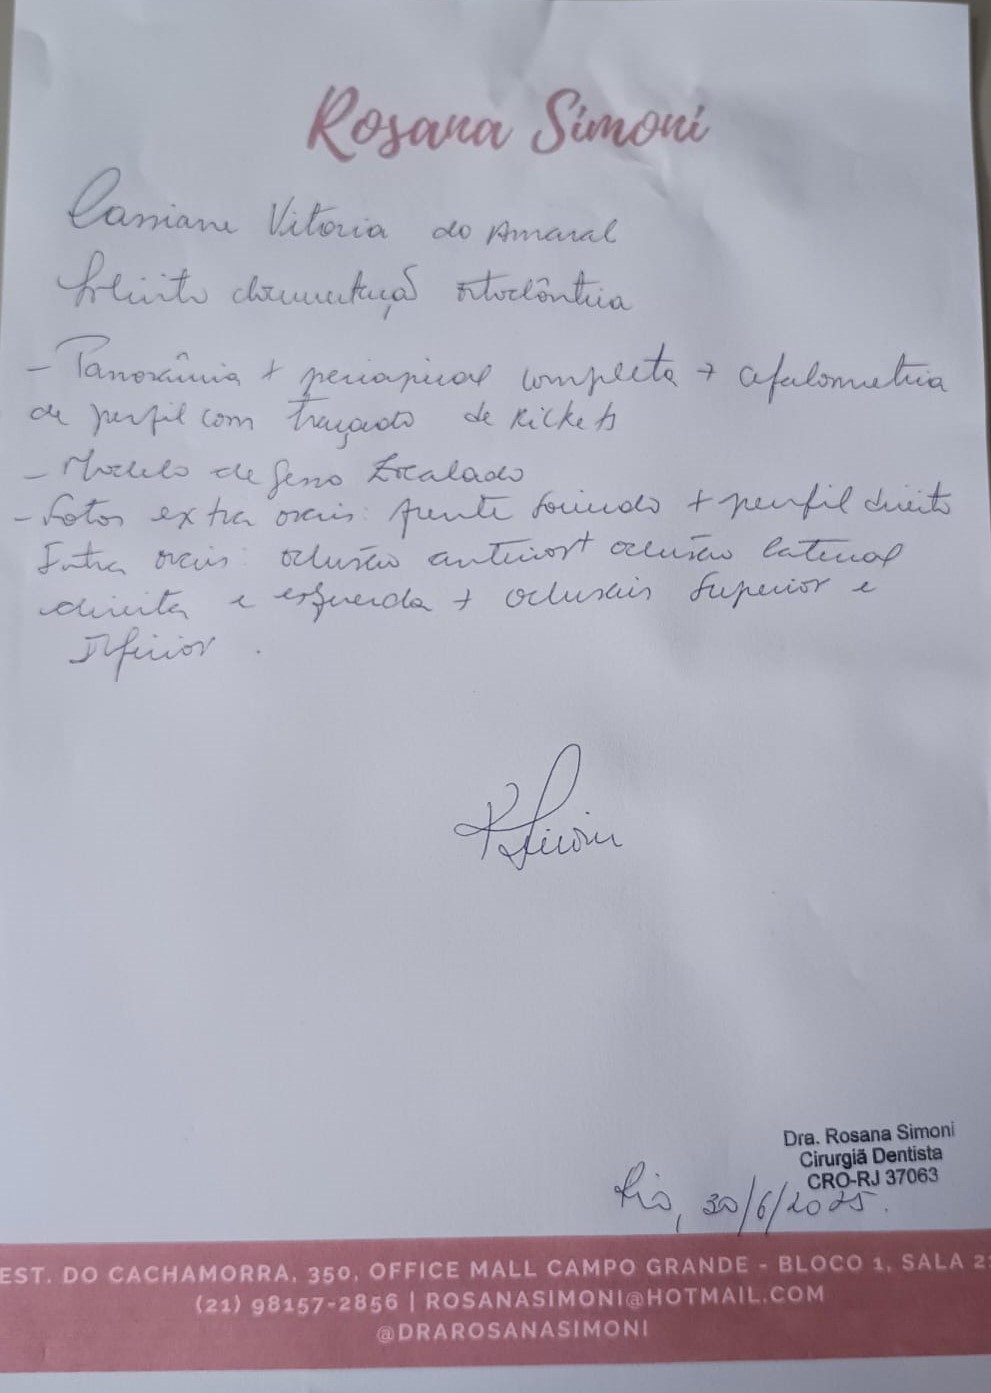 Rosana Simoni
Cassiane Vitoria do Amaral
Solicito documentação ortodôntica
- Panorâmica + periapical completa + cefalometria
de perfil com traçado de Rickets
- Modelo de gesso Zocalado
- Fotos extra orais: frente sorrindo + perfil direito
Intra orais: oclusão anterior + oclusão lateral
direita e esquerda + oclusais superior e
Inferior.
RSimoni
Dra. Rosana Simoni
Cirurgiã Dentista
CRO-RJ 37063
Rio, 30/6/2025.
EST. DO CACHAMORRA, 350, OFFICE MALL CAMPO GRANDE - BLOCO 1, SALA 2
(21) 98157-2856 | ROSANASIMONI@HOTMAIL.COM
@DRAROSANASIMONI